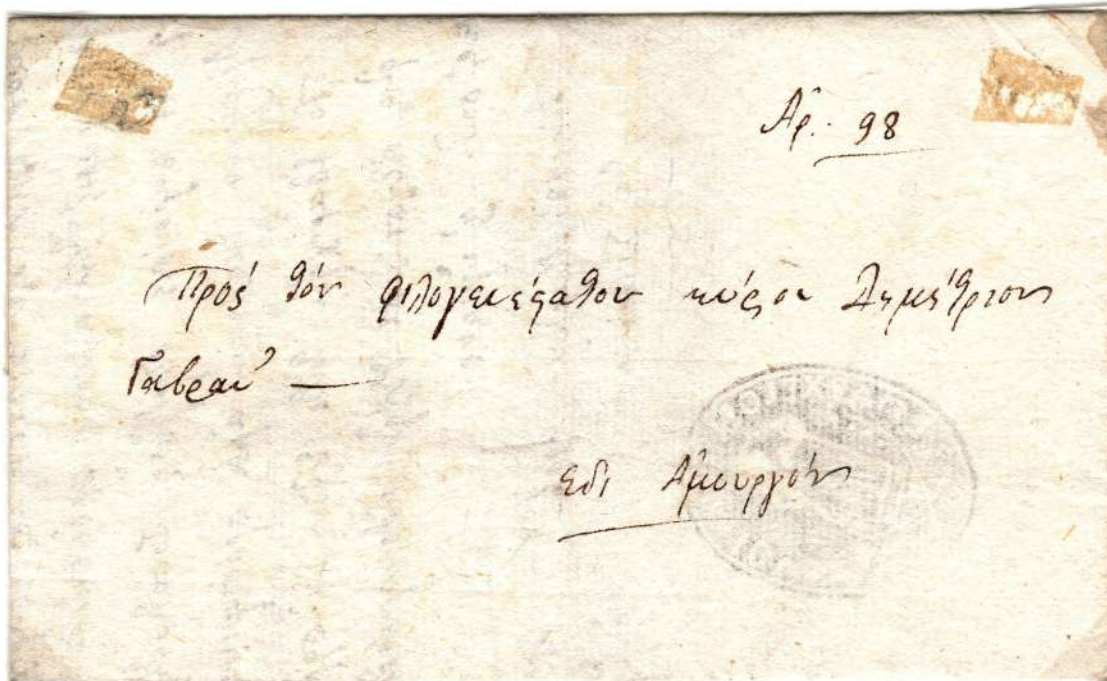 Αρ. 98
Πρός τόν φιλογενέςατον κύριον Δημήτριον
Γαβράν —
εἰς Ἀμουργόν